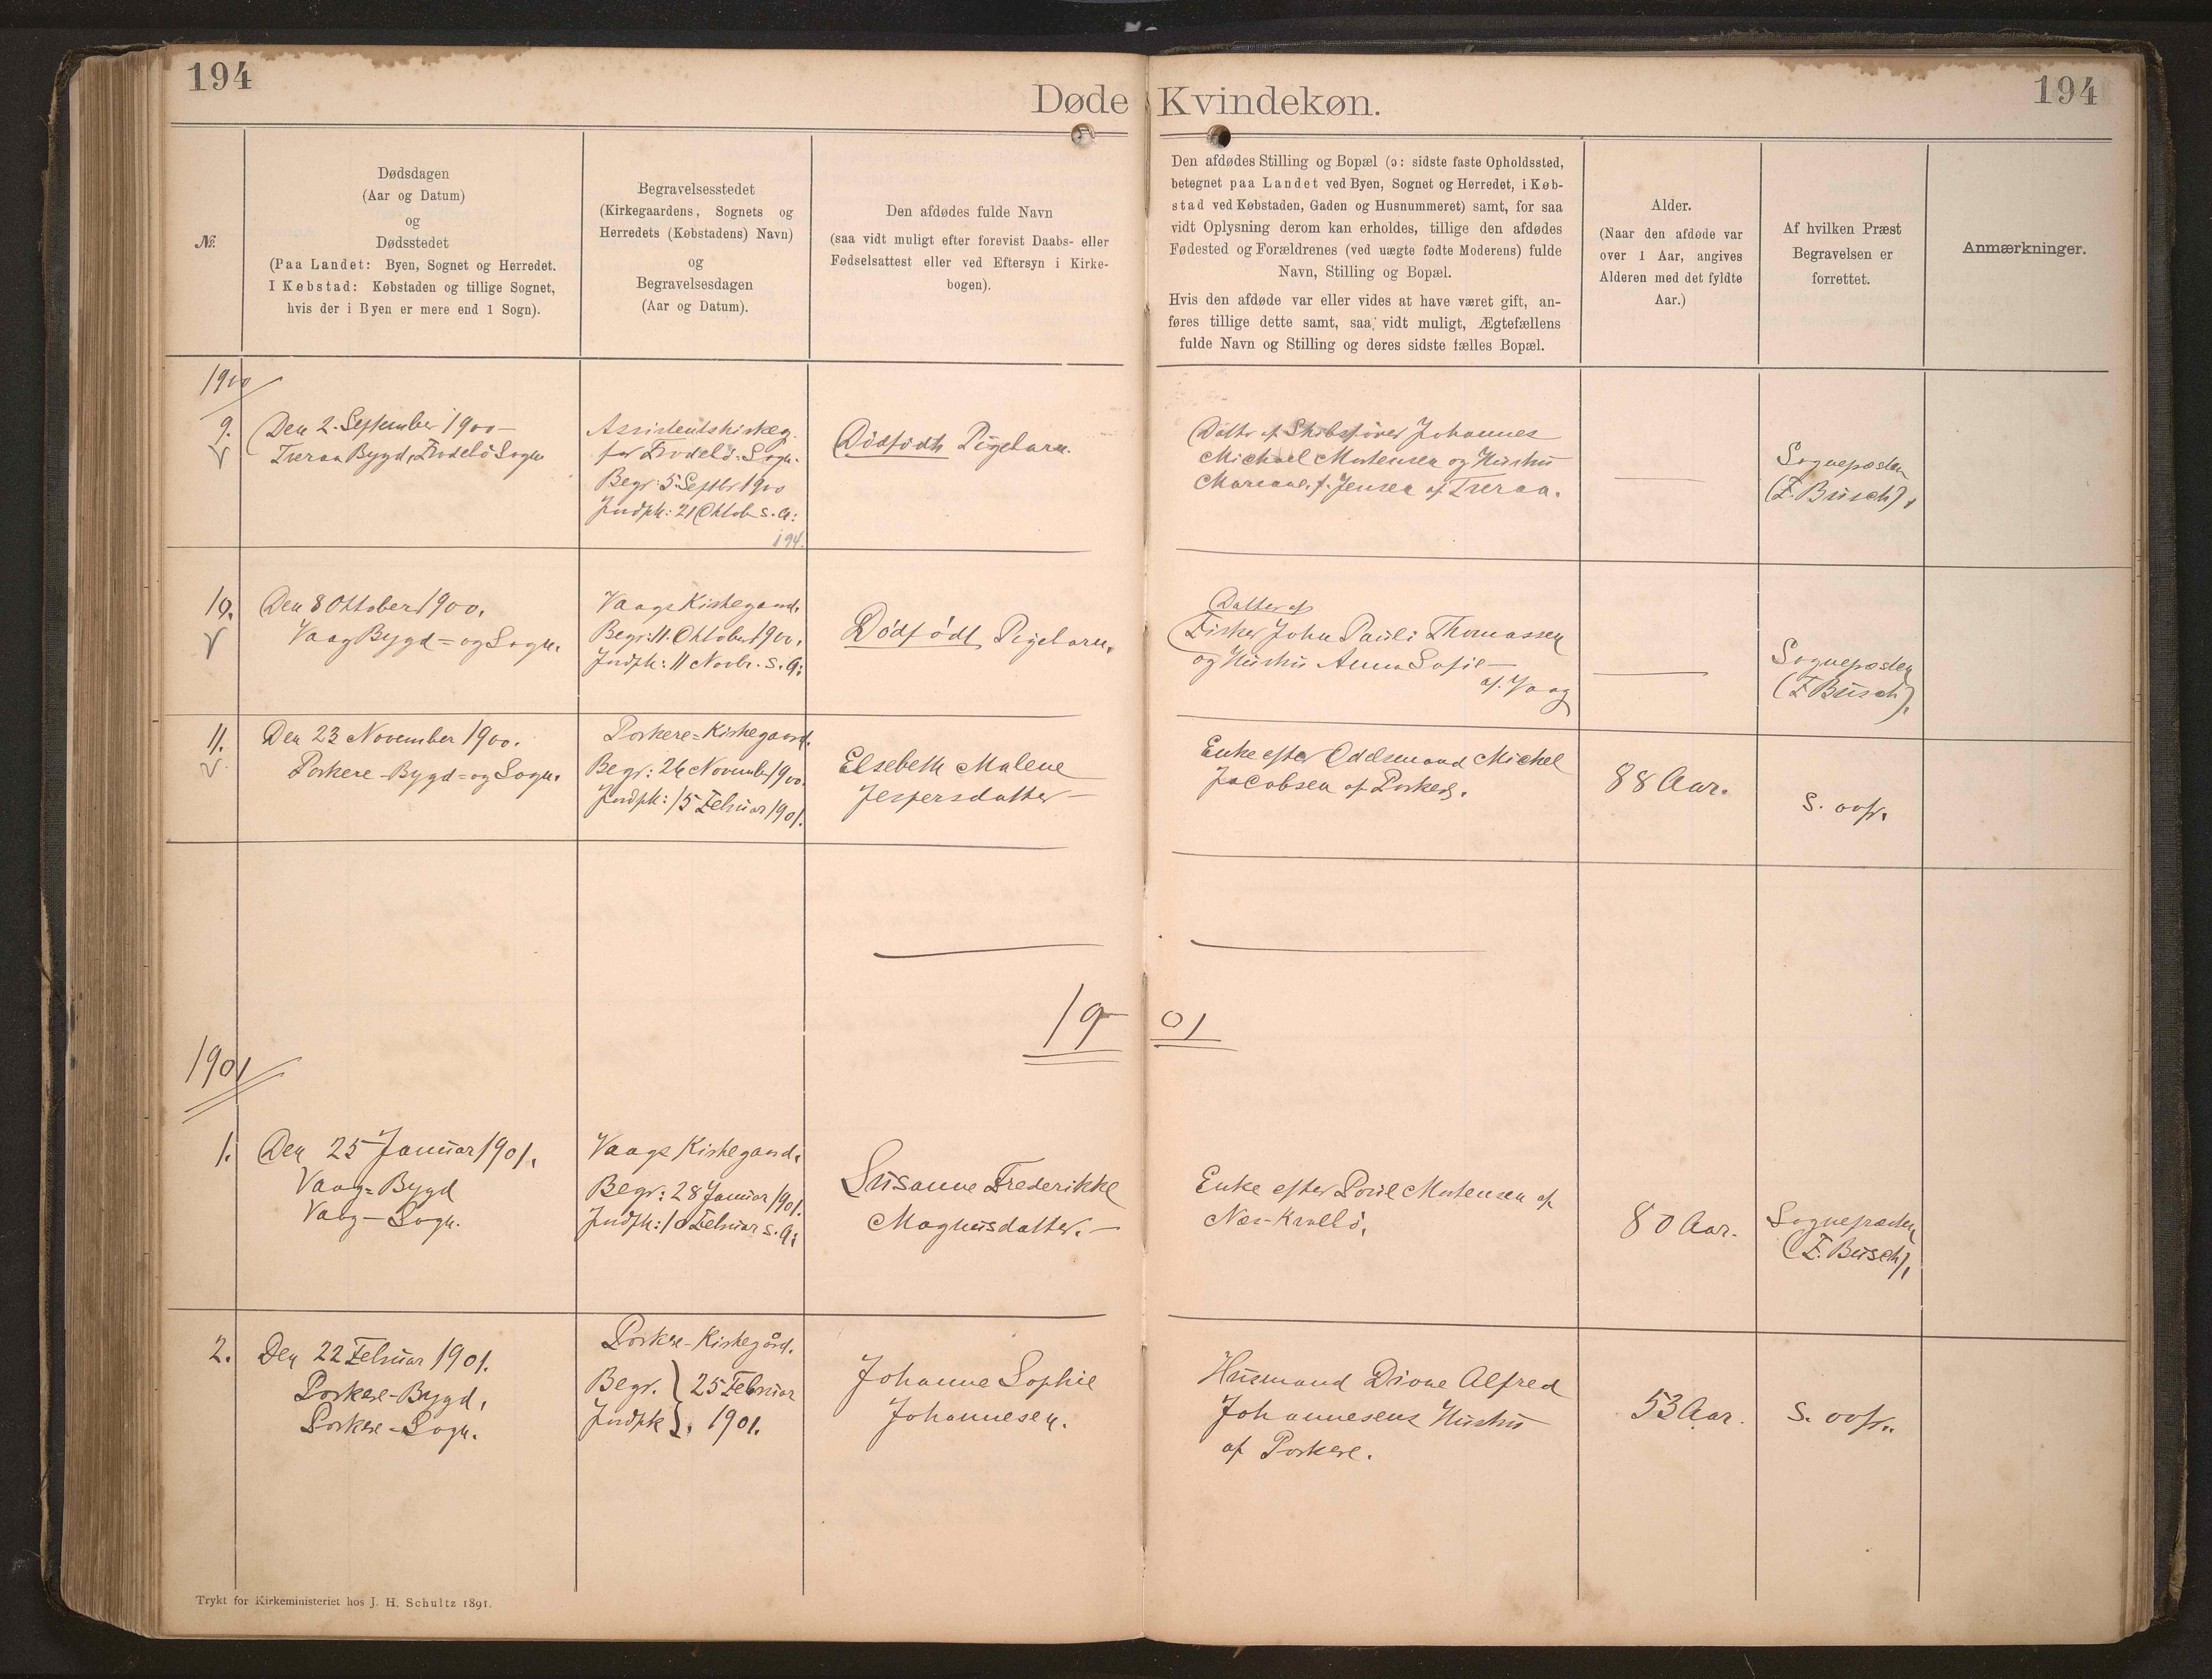 194
Døde Kvindekøn.
194
№
Dødsdagen
(Aar og Datum)
og
Dødsstedet
(Paa Landet: Byen, Sognet og Herredet.
I Købstad: Købstaden og tillige Sognet,
hvis der i Byen er mere end 1 Sogn).
Begravelsesstedet
(Kirkegaardens, Sognets og
Herredets (Købstadens) Navn)
og
Begravelsesdagen
(Aar og Datum).
Den afdødes fulde Navn
(saa vidt muligt efter forevist Daabs- eller
Fødselsattest eller ved Eftersyn i Kirke-
bogen).
Den afdødes Stilling og Bopæl (ɔ: sidste faste Opholdssted,
betegnet paa Landet ved Byen, Sognet og Herredet, i Køb-
stad ved Købstaden, Gaden og Husnummeret) samt, for saa
vidt Oplysning derom kan erholdes, tillige den afdødes
Fødested og Forældrenes (ved uægte fødte Moderens) fulde
Navn, Stilling og Bopæl.
Hvis den afdøde var eller vides at have været gift, an-
føres tillige dette samt, saa vidt muligt, Ægtefællens
fulde Navn og Stilling og deres sidste fælles Bopæl.
Alder.
(Naar den afdøde var
over 1 Aar, angives
Alderen med det fyldte
Aar.)
Af hvilken Præst
Begravelsen er
forrettet.
Anmærkninger.
1900
9.
Den 2. September 1900 —
Tveraa Bygd, Frodebö Sogn
Assistentskirkeg.
for Frodebö-Sogn.
Begr: 5 Septbr 1900
Jndpk: 21 Oktob s. A:
194.
Dödfödt Pigebarn.
Datter af Skibsförer Johannes
Michael Mortensen og Hustru
Mariane, f. Jensen af Tveraa.
—
Sognepræsten
(F. Busch),
10.
Den 8 Oktober 1900,
Vaag Bygd = og Sogn.
Vaags Kirkegaard.
Begr: 11. Oktober 1900,
Jndpk: 11 Novbr. s. A:
Dödfödt Pigebarn,
Datter af
Fisker John Pauli Thomassen
og Hustru Anna Sofie —
af. Vaag
—
Sognepræsten
(F Busch),
11.
Den 23 November 1900.
Porkere - Bygd = og Sogn,
Porkere = Kirkegaard.
Begr: 26 November 1900.
Jndpk: 15 Februar 1901.
Elsebeth Malene
Jespersdatter —
Enke efter Odelsmand Michel
Jacobsen af Porkere.
88 Aar.
S. oofr.
1901
1901
1.
Den 25 Januar 1901,
Vaag = Bygd
Vaag — Sogn.
Vaags Kirkegaard.
Begr: 28 Januar 1901.
Jndpk: 10 Februar s. A:
Susanne Frederikke
Magnusdatter. —
Enke efter Poul Mortensen af
Næs-Kvalbö,
80 Aar.
Sognepræsten
(F. Busch),
2.
Den 22 Februar 1901.
Porkere - Bygd,
Porkere - Sogn.
Porkere - Kirkegård.
Begr. } 25 Februar
Jndpk } . 1901.
Johanne Sophie
Johannesen.
Husmand Dione Alfred
Johannesens Hustru
af Porkere.
53 Aar.
S. oofr.
Trykt for Kirkeministeriet hos J. H. Schultz 1891.